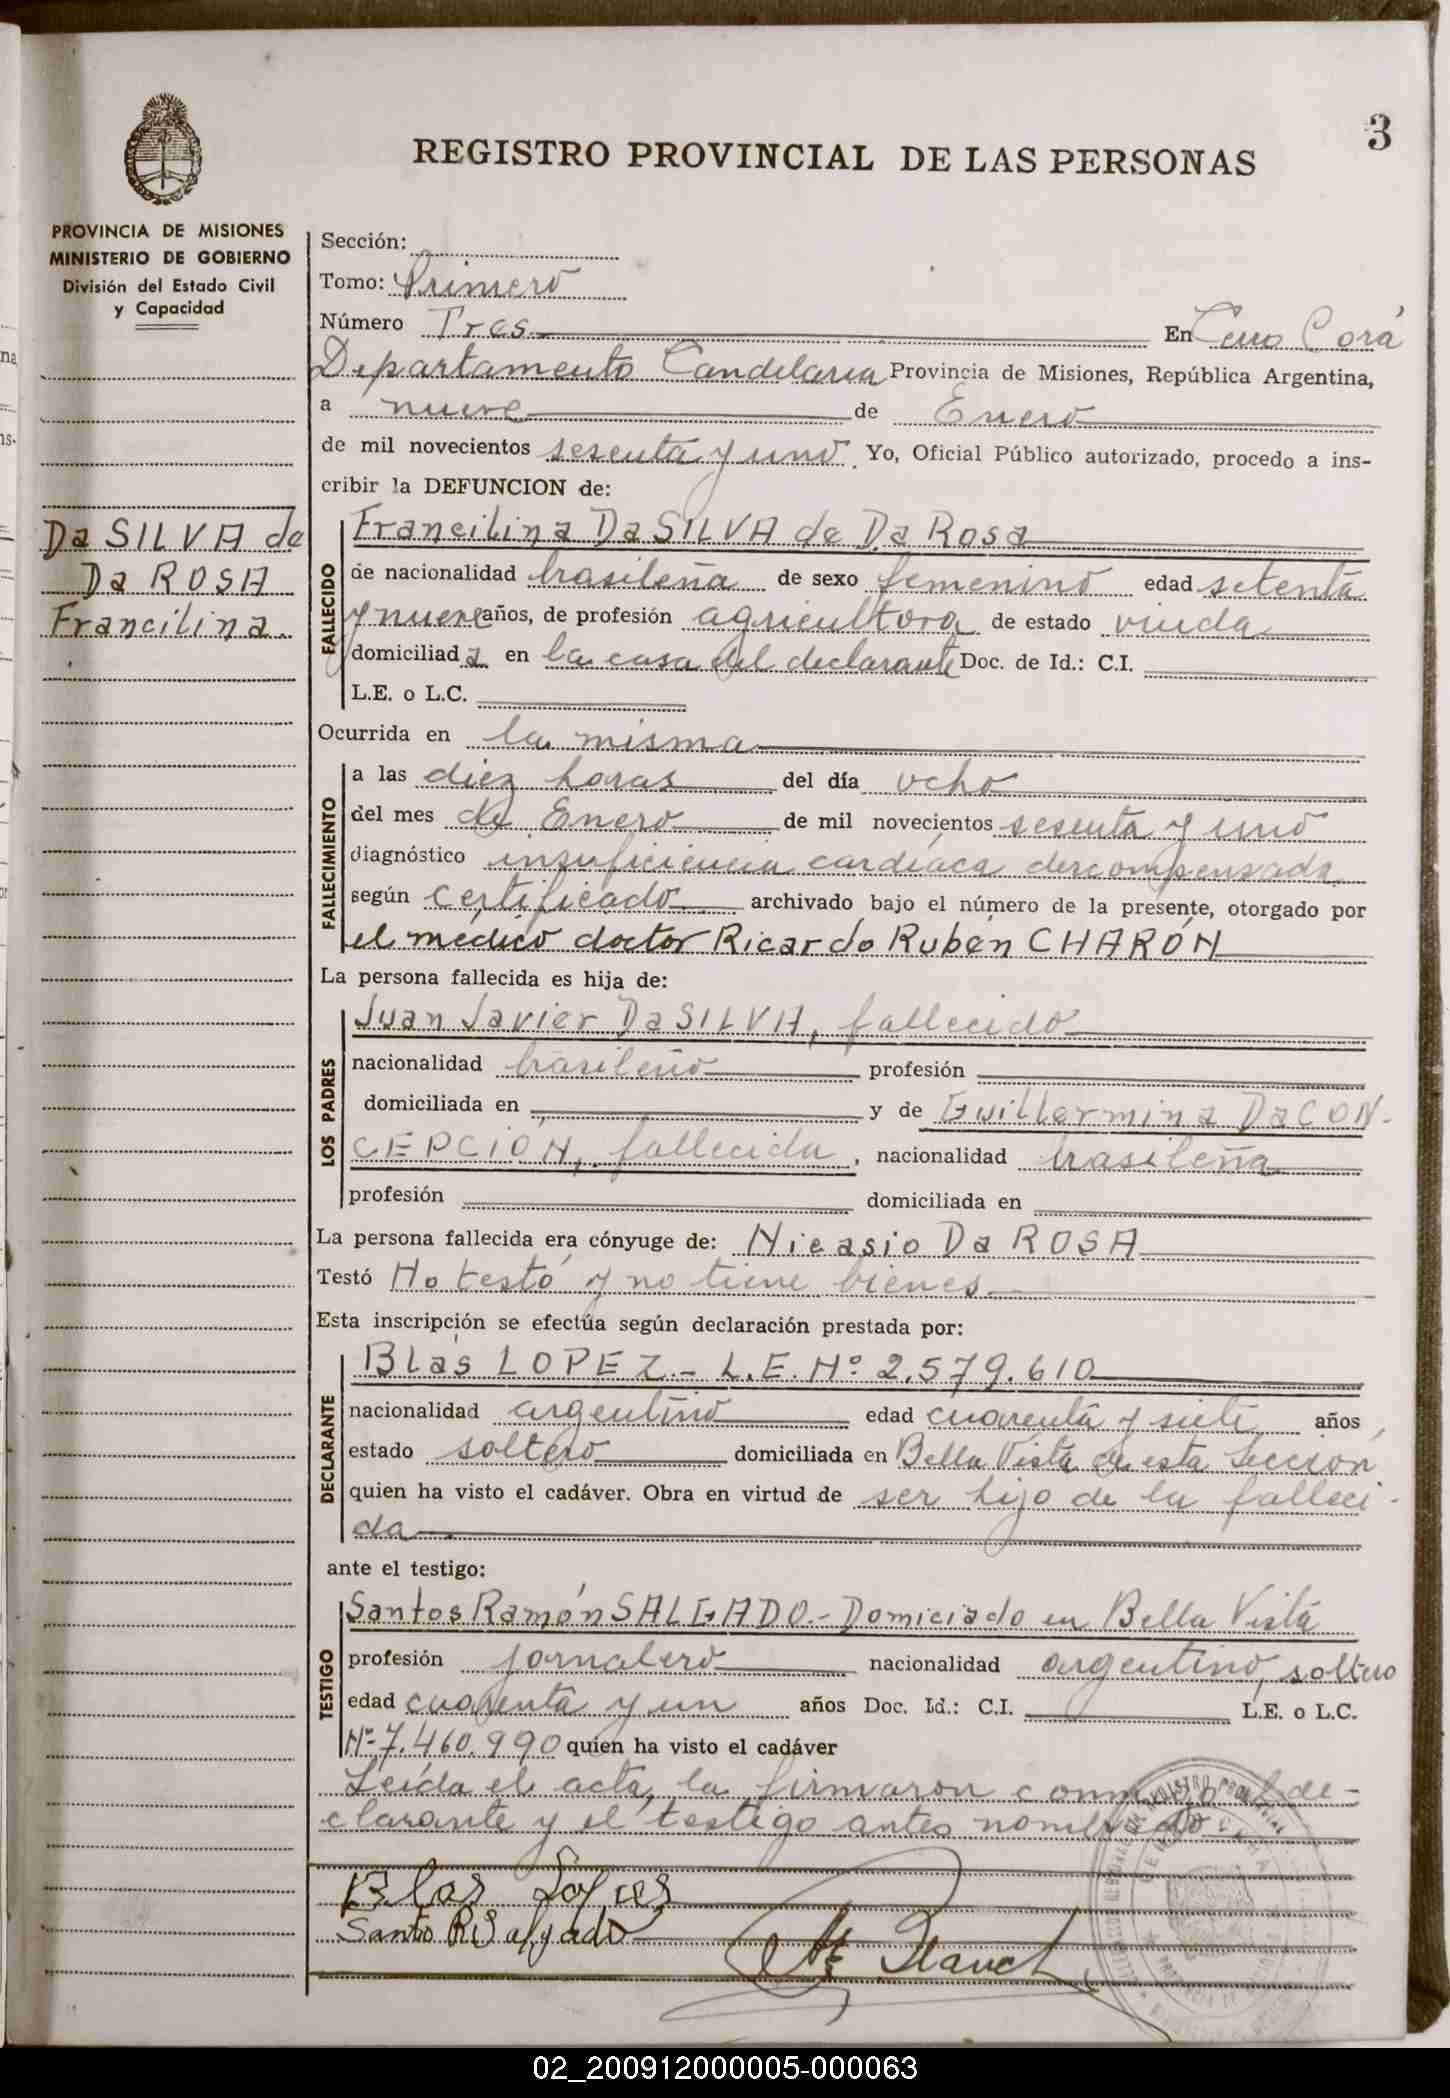 3
REGISTRO PROVINCIAL DE LAS PERSONAS
PROVINCIA DE MISIONES
MINISTERIO DE GOBIERNO
División del Estado Civil
y Capacidad
Da SILVA de
Da ROSA
Francilina.
Sección:
Tomo: Primero
Número Tres En Cerro Corá
Departamento Candelaria Provincia de Misiones, República Argentina,
a nueve de Enero
de mil novecientos sesenta y uno. Yo, Oficial Público autorizado, procedo a ins-
cribir la DEFUNCION de:
FALLECIDO
Francilina Da SILVA de Da Rosa
de nacionalidad brasileña de sexo femenino edad setenta
y nueve años, de profesión agricultora de estado viuda
domiciliada en la casa del declarante Doc. de Id.: C.I.
L.E. o L.C.
Ocurrida en la misma
FALLECIMIENTO
a las diez horas del día ocho
del mes de Enero de mil novecientos sesenta y uno
diagnóstico insuficiencia cardíaca descompensada
según certificado archivado bajo el número de la presente, otorgado por
el médico doctor Ricardo Rubén CHARÓN
La persona fallecida es hija de:
LOS PADRES
Juan Javier Da SILVA, fallecido
nacionalidad brasileño profesión
domiciliada en y de Guillermina Da CON-
CEPCIÓN, fallecida, nacionalidad brasileña
profesión domiciliada en
La persona fallecida era cónyuge de: Nicasio Da ROSA
Testó No testó y no tiene bienes
Esta inscripción se efectúa según declaración prestada por:
DECLARANTE
Blas LOPEZ.- L.E. Nº 2.579.610
nacionalidad argentino edad cuarenta y siete años,
estado soltero domiciliada en Bella Vista de esta Sección
quien ha visto el cadáver. Obra en virtud de ser hijo de la falleci-
da
ante el testigo:
TESTIGO
Santos Ramón SALGADO.- Domiciado en Bella Vista
profesión jornalero nacionalidad argentino, soltero
edad cuarenta y un años Doc. Id.: C.I. L.E. o L.C.
Nº 7.460.990 quien ha visto el cadáver
Leída el acta, la firmaron conmigo el de-
clarante y el testigo antes nombrado
Blas Lopes
Santo R Salgado
02_200912000005-000063